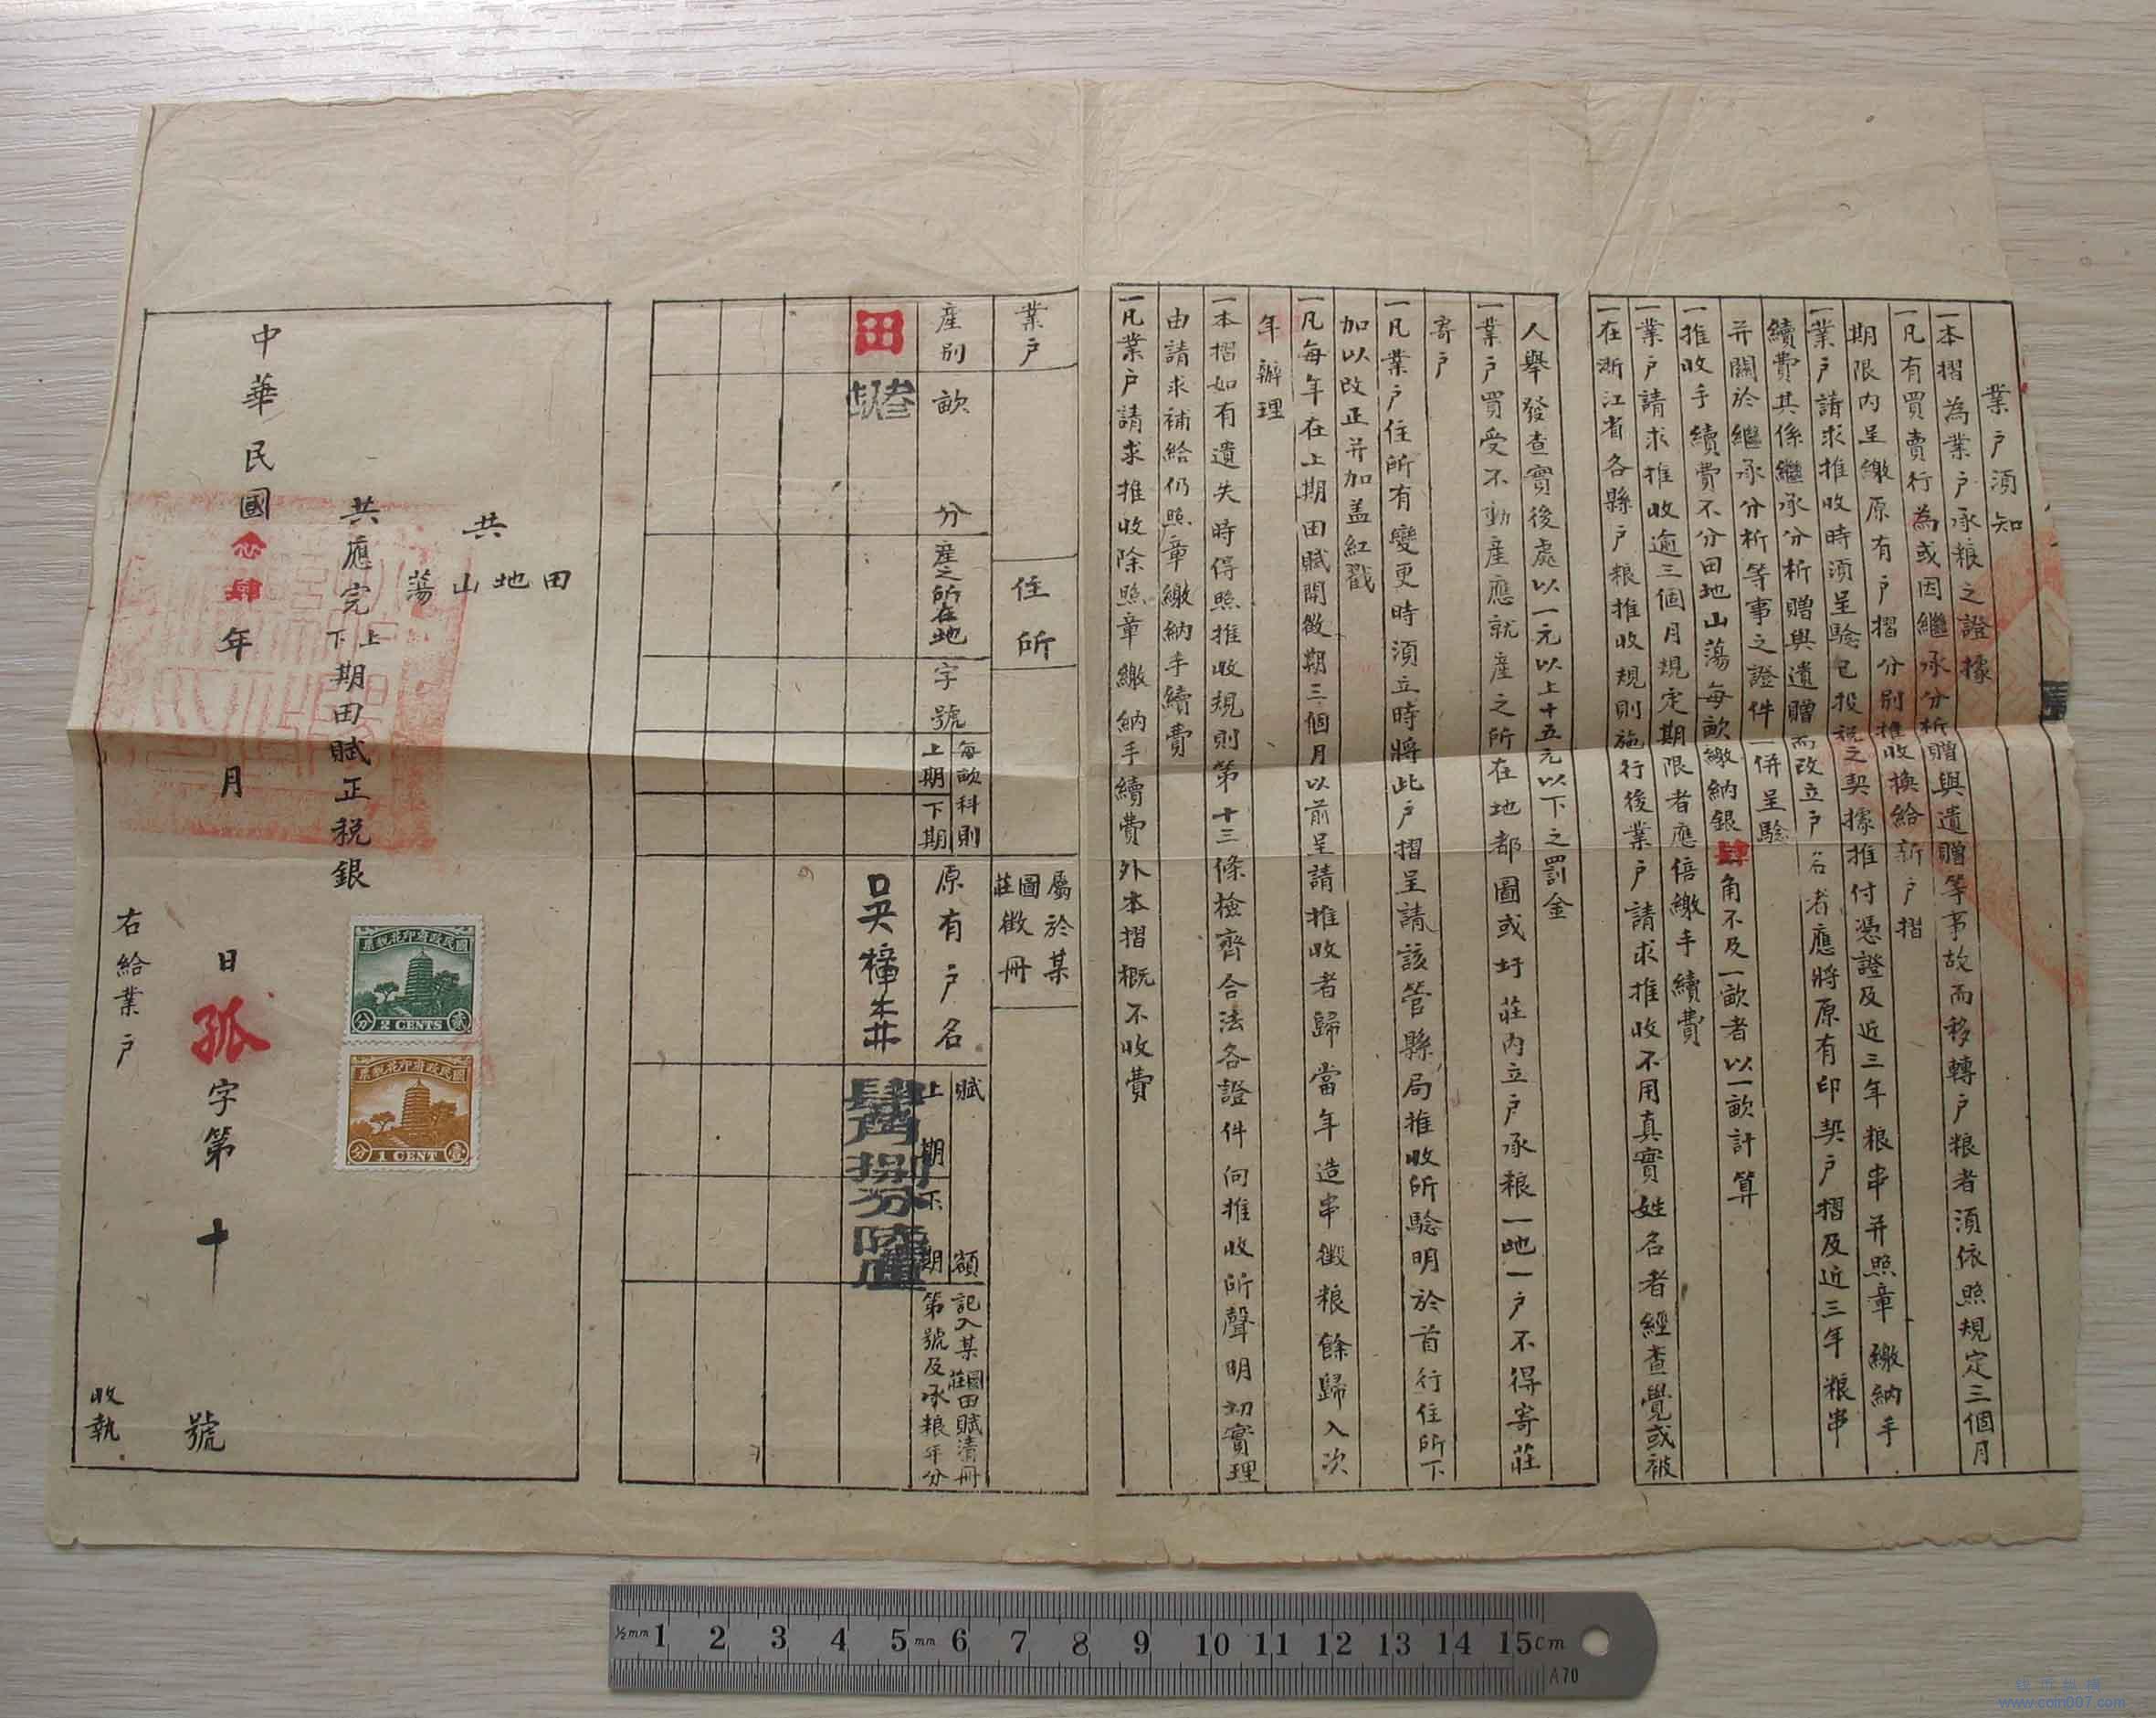 業戶須知
一本摺為業戶承粮之證據
一凡有買賣行為或因繼承分析贈與遺贈等事故而移轉戶粮者須依照規定三個月
期限内呈繳原有戶摺分別推收換給新戶摺
一業戶請求推收時須呈驗已投税之契據推付憑證及近三年粮串并照章繳納手
續費其係繼承分析贈與遺贈而改立戶名者應將原有印契戶摺及近三年粮串
并關於繼承分析等事之證件一併呈驗
一推收手續費不分田地山蕩每畝繳納銀肆角不及一畝者以一畝計算
一業戶請求推收逾三個月規定期限者應倍繳手續費
一在浙江省各縣戶粮推收規則施行後業戶請求推收不用真實姓名者經查覺或被
人舉發查實後處以一元以上十五元以下之罰金
一業戶買受不動產應就產之所在地都圖或圩莊内立戶承粮一地一戶不得寄莊
寄戶
一凡業戶住所有變更時須立時將此戶摺呈請該管縣局推收所驗明於首行住所下
加以改正并加盖紅戳
一凡每年在上期田賦開徵期三個月以前呈請推收者歸當年造串徵粮餘歸入次
年辦理
一本摺如有遺失時得照推收規則第十三條檢齊合法各證件向推收所聲明切實理
由請求補給仍照章繳納手續費
一凡業戶請求推收除照章繳納手續費外本摺概不收費
業戶
住所
屬於某
圖徵冊
莊
產別
畝
分
產之所在地
字號
每畝科則
上期下期
原有戶名
賦額
上期
下期
記入某圖莊田賦清冊
第號及承粮年分
田
吳樟森
肆角捌分陸厘
共
田
地
山
蕩
共應完上下期田賦正税銀
國民政府印花税票
貳分
2 CENTS
國民政府印花税票
壹分
1 CENT
中華民國念肆年
月
日
孤字第十號
右給業戶
收執
½mm 1 2 3 4 5 mm 6 7 8 9 10 11 12 13 14 15cm
A70
www.coin007.com